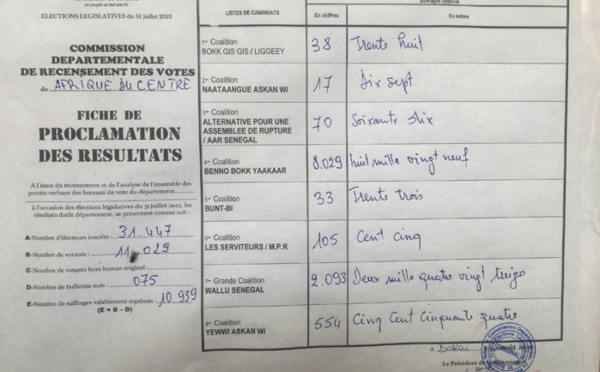 ELECTIONS LEGISLATIVES du 31 juillet 2022
COMMISSION
DEPARTEMENTALE
DE RECENSEMENT DES VOTES
de AFRIQUE DU CENTRE
FICHE DE
PROCLAMATION
DES RESULTATS
A l'issue du recensement et de l'analyse de l'ensemble des
procès-verbaux des bureaux de vote du département.
à l'occasion des élections législatives du 31 juillet 2022, les
résultats dudit département, se présentent comme suit :
A-Nombre d'électeurs inscrits : 31.447
B-Nombre de votants : 11.029
C-Nombre de votants hors bureau originel :
D-Nombre de bulletins nuls : 075
E-Nombre de suffrages valablement exprimés : 10.939
(E = B – D)
LISTES DE CANDIDATS En chiffres En lettres
1ère Coalition
BOKK GIS GIS / LIGGEEY 38 Trente huit
2ème Coalition
NAATAANGUE ASKAN WI 17 Dix sept
3ème Coalition
ALTERNATIVE POUR UNE
ASSEMBLEE DE RUPTURE
/ AAR SENEGAL 70 Soixante dix
4ème Coalition
BENNO BOKK YAAKAAR 8.029 huit mille vingt neuf
5ème Coalition
BUNT-BI 33 Trente trois
6ème Coalition
LES SERVITEURS / M.P.R 105 Cent cinq
7ème Grande Coalition
WALLU SENEGAL 2.093 Deux mille quatre vingt treize
8ème Coalition
YEWWI ASKAN WI 554 Cinq Cent Cinquante quatre
A Dakar
Le Président de